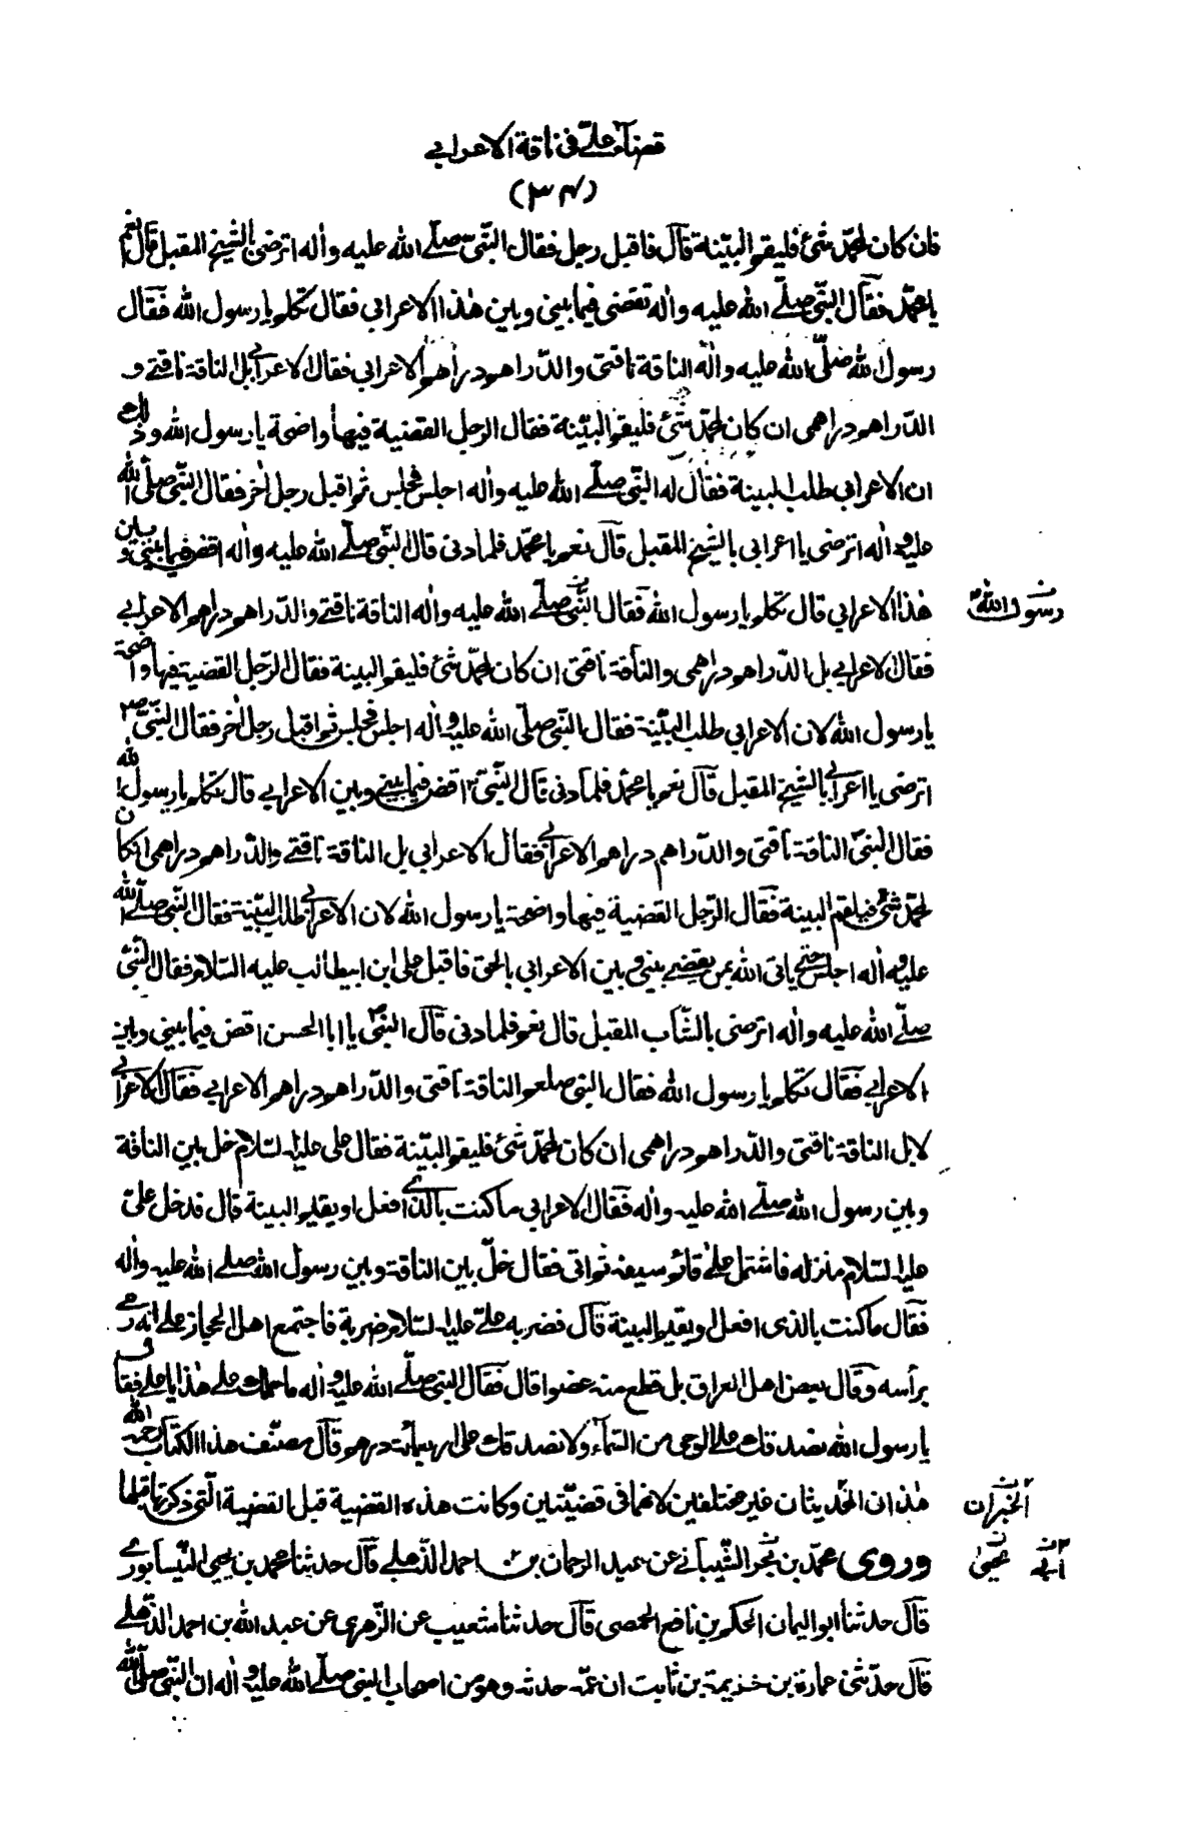 قضاء علیّ فی ناقة الاعرابی
(۳۴)
فان کان لمحمّد شئ فلیقم البیّنة قال فاقبل رجل فقال النّبیّ صلّی الله علیه واٰله اترضی بالشیخ المقبل قال نعم
یا محمّد فقال النّبیّ صلّی الله علیه واٰله تقضی فیما بینی وبین هٰذا الاعرابی فقال تکلم یا رسول الله فقال
رسول الله صلّی الله علیه واٰله الناقة ناقتی والدّراهم دراهم الاعرابی فقال الاعرابی بل الناقة ناقتی و
الدّراهم دراهمی ان کان لمحمّد شئ فلیقم البیّنة فقال الرجل القضیة فیها واضحة یا رسول الله وذلک
ان الاعرابی طلب البینة فقال له النّبی صلّی الله علیه واٰله اجلس فجلس ثم اقبل رجل اٰخر فقال النّبی صلّی الله
علیه واٰله اترضی یا اعرابی بالشیخ المقبل قال نعم یا محمّد فلما دنی قال النّبی صلّی الله علیه واٰله اقض فیما بینی وبین
هٰذا الاعرابی قال تکلم یا رسول الله فقال النّبی صلّی الله علیه واٰله الناقة ناقتی والدّراهم دراهم الاعرابی
رسول الله
فقال الاعرابی بل الدّراهم دراهمی والناقة ناقتی ان کان لمحمّد شئ فلیقم البینة فقال الرّجل القضیة فیها واضحة
یا رسول الله لان الاعرابی طلب البیّنة فقال النّبی صلّی الله علیه واٰله اجلس فجلس ثم اقبل رجل اٰخر فقال النّبیّ ص
اترضی یا اعرابی بالشیخ المقبل قال نعم یا محمّد فلما دنی قال النّبیّ اقض فیما بینی وبین الاعرابی قال تکلم یا رسول الله
فقال النّبیّ الناقة ناقتی والدّراهم دراهم الاعرابی فقال الاعرابی بل الناقة ناقتی والدّراهم دراهمی ان کان
لمحمّد شئ فیلقم البینة فقال الرّجل القضیة فیها واضحة یا رسول الله لان الاعرابی طلب البیّنة فقال النّبی صلّی الله
علیه واٰله اجلس حتی یاتی الله بمن یقضی بینی وبین الاعرابی بالحق فاقبل علی ابن ابیطالب علیه السّلام فقال النّبیّ
صلّی الله علیه واٰله اترضی بالشّاب المقبل قال نعم فلما دنی قال النّبیّ یا ابا الحسن اقض فیما بینی وبین
الاعرابی فقال تکلم یا رسول الله فقال النبی صلعم الناقة ناقتی والدّراهم دراهم الاعرابی فقال الاعرابی
لا بل الناقة ناقتی والدّراهم دراهمی ان کان لمحمّد شئ فلیقم البیّنة فقال علی علیه السّلام خل بین الناقة
وبین رسول الله صلّی الله علیه واٰله فقال الاعرابی ما کنت بالذی افعل او یقیم البینة قال فدخل علیّ
علیه السّلام منزله فاشتمل علی قائم سیفه ثم اتی فقال خلّ بین الناقة وبین رسول الله صلی الله علیه واٰله
فقال ما کنت بالذی افعل او یقیم البینة قال فضربه علیّ علیه السّلام ضربة فاجتمع اهل الحجاز علی انه رمی
برأسه وقال بعض اهل العراق بل قطع منه عضوا قال فقال النبی صلّی الله علیه واٰله ما حملک علی هٰذا یا علی فقال
یا رسول الله نصدقک علی الوحی من السّماء ولا نصدقک علی اربعمائة درهم وقال مصنّف هذا الکتاب رحمه الله
هٰذان الحدیثان غیر مختلفین لانهما فی قضیّتین وکانت هذه القضیة قبل القضیة الّتی ذکرتها قبلها
الخبران
وروی محمّد بن بحر الشّیبانی عن عبد الرحمان بن احمد الذّهلی قال حدثنا محمد بن یحیی النّیسابوری
قال حدثنا ابو الیمان الحکم بن نافع الحمصی قال حدثنا شعیب عن الزّهری عن عبد الله بن احمد الذّهلی
قال حدّثنی عمارة بن خزیمة بن ثابت ان عمّه حدثه وهو من اصحاب النبی صلّی الله علیه واٰله ان النّبی صلّی الله